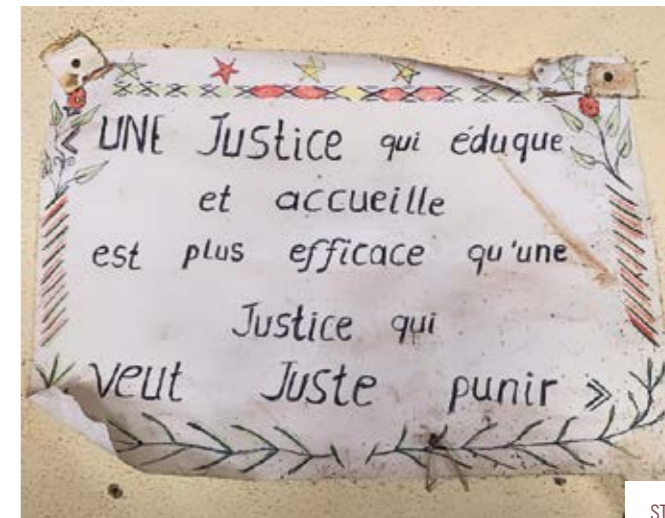 « UNE Justice qui éduque
et accueille
est plus efficace qu'une
Justice qui
veut Juste punir »
ST